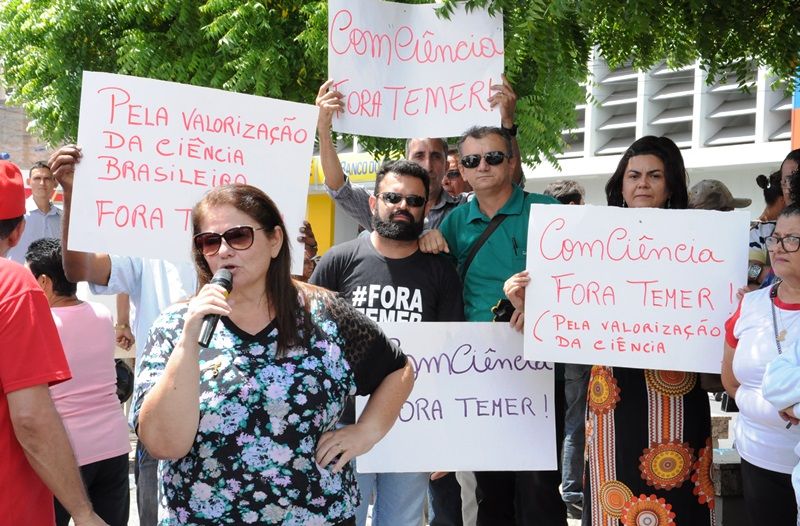 ComCiência
FORA TEMER!
PELA VALORIZAÇÃO
DA CIÊNCIA
BRASILEIRA
FORA
BANCO DO
#FORA
TEMER
ComCiência
FORA TEMER!
(PELA VALORIZAÇÃO
DA CIÊNCIA
ComCiência
FORA TEMER!